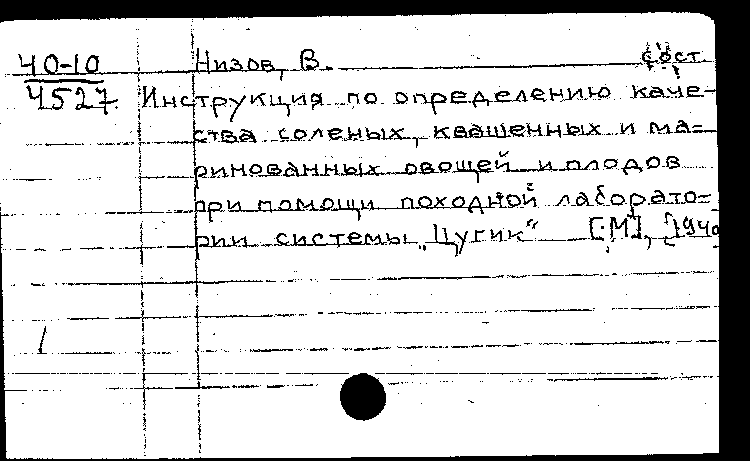 40-10 Низов, В. сост.
4527 Инструкция по определению каче-
ства соленых, квашенных и ма-
ринованных овощей и плодов
при помощи походной лаборато-
рии системы „Цугик“ [М], [1940